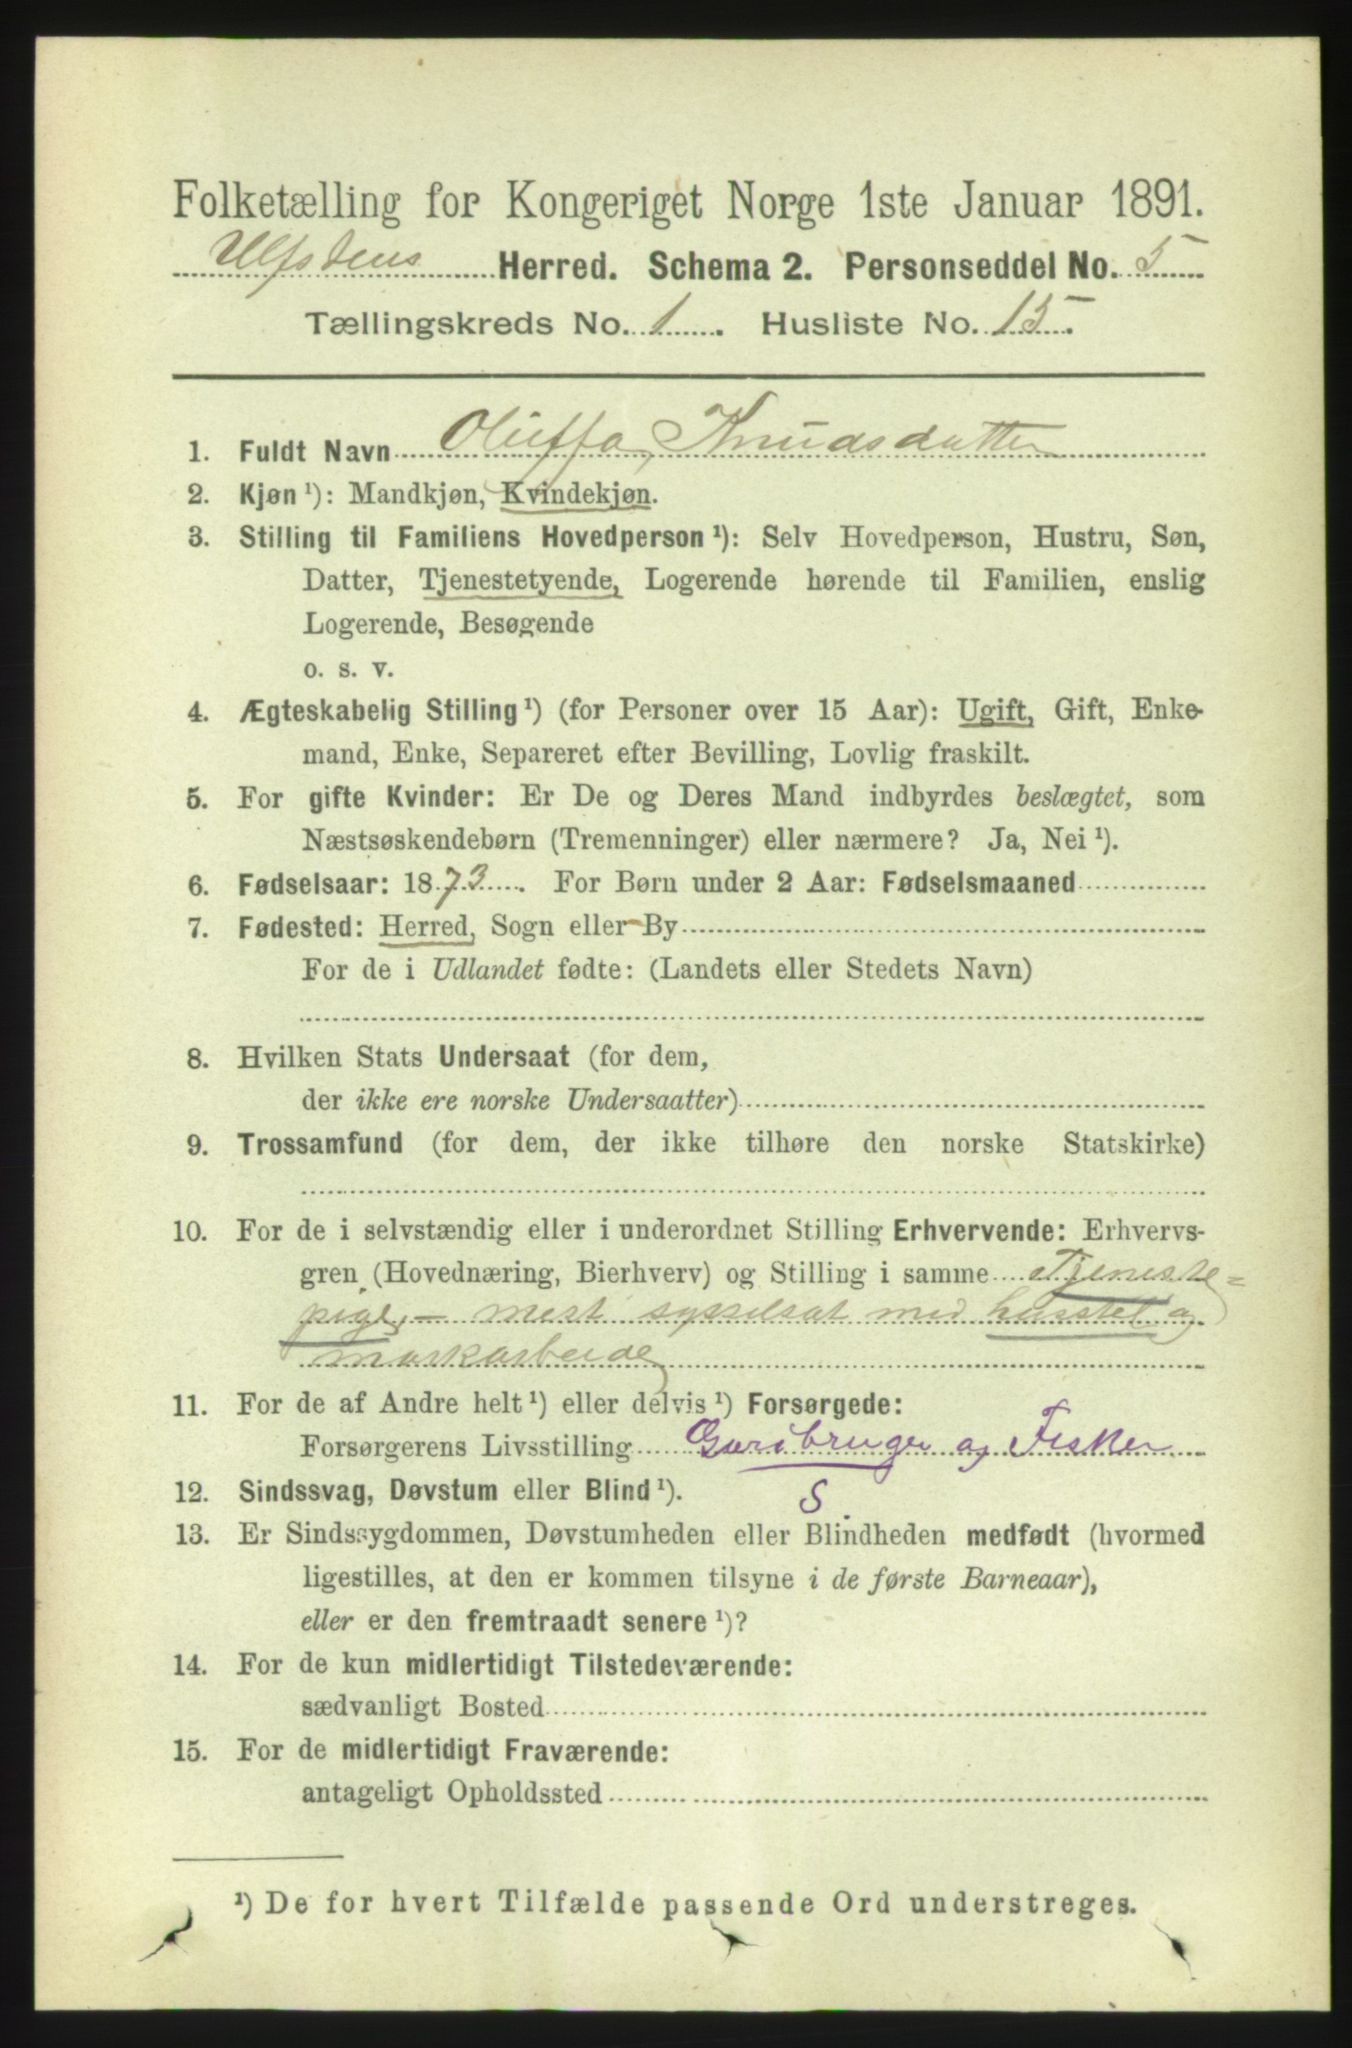 Folketælling for Kongeriget Norge 1ste Januar 1891.
Ulfstens Herred. Schema 2. Personseddel No. 5
Tællingskreds No. 1. Husliste No. 15.
1. Fuldt Navn Oluffa Knudsdatter
2. Kjøn ¹): Mandkjøn, Kvindekjøn.
3. Stilling til Familiens Hovedperson ¹): Selv Hovedperson, Hustru, Søn,
Datter, Tjenestetyende, Logerende hørende til Familien, enslig
Logerende, Besøgende
o. s. v.
4. Ægteskabelig Stilling ¹) (for Personer over 15 Aar): Ugift, Gift, Enke-
mand, Enke, Separeret efter Bevilling, Lovlig fraskilt.
5. For gifte Kvinder: Er De og Deres Mand indbyrdes beslægtet, som
Næstsøskendebørn (Tremenninger) eller nærmere? Ja, Nei ¹).
6. Fødselsaar: 1873. For Børn under 2 Aar: Fødselsmaaned
7. Fødested: Herred, Sogn eller By
For de i Udlandet fødte: (Landets eller Stedets Navn)
8. Hvilken Stats Undersaat (for dem,
der ikke ere norske Undersaatter)
9. Trossamfund (for dem, der ikke tilhøre den norske Statskirke)
10. For de i selvstændig eller i underordnet Stilling Erhvervende: Erhvervs-
gren (Hovednæring, Bierhverv) og Stilling i samme Tjeneste=
pige, — mest sysselsat med husstel og
markarbeide
11. For de af Andre helt ¹) eller delvis ¹) Forsørgede:
Forsørgerens Livsstilling Garbruger og Fisker
12. Sindssvag, Døvstum eller Blind ¹). S.
13. Er Sindssygdommen, Døvstumheden eller Blindheden medfødt (hvormed
ligestilles, at den er kommen tilsyne i de første Barneaar),
eller er den fremtraadt senere ¹)?
14. For de kun midlertidigt Tilstedeværende:
sædvanligt Bosted
15. For de midlertidigt Fraværende:
antageligt Opholdssted
¹) De for hvert Tilfælde passende Ord understreges.